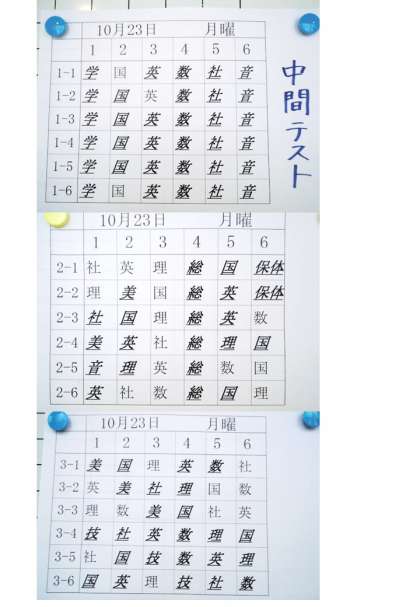 10月23日 月曜
1 2 3 4 5 6
1-1 学 国 英 数 社 音
1-2 学 国 英 数 社 音
1-3 学 国 英 数 社 音
1-4 学 国 英 数 社 音
1-5 学 国 英 数 社 音
1-6 学 国 英 数 社 音
中間テスト
10月23日 月曜
1 2 3 4 5 6
2-1 社 英 理 総 国 保体
2-2 理 美 国 総 英 保体
2-3 社 国 理 総 英 数
2-4 美 英 社 総 理 国
2-5 音 理 英 総 数 国
2-6 英 社 数 総 国 理
10月23日 月曜
1 2 3 4 5 6
3-1 美 国 理 英 数 社
3-2 英 美 社 理 国 数
3-3 理 数 美 国 社 英
3-4 技 社 英 数 理 国
3-5 社 国 技 数 英 理
3-6 国 英 理 技 社 数